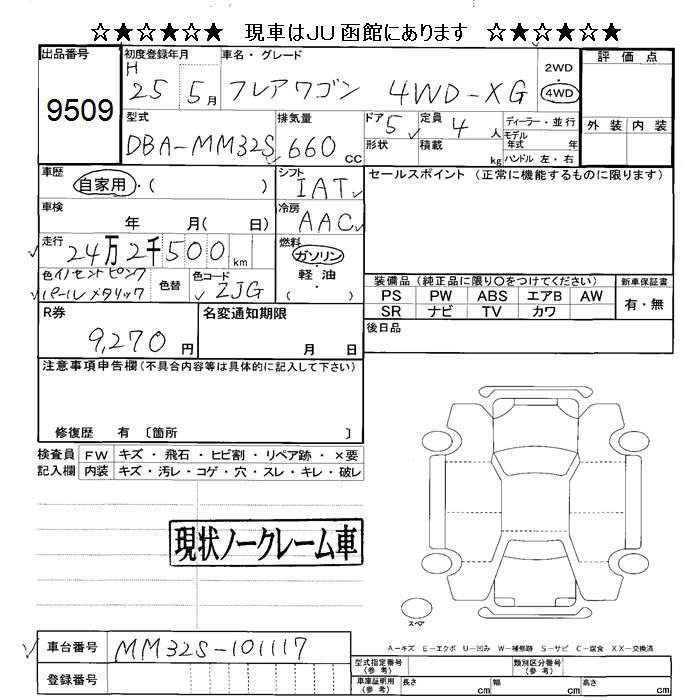 ☆★☆★☆★ 現車はJU函館にあります ☆★☆★☆★
出品番号
9509
初度登録年月
H 25 5月
車名・グレード
フレアワゴン 4WD-XG
2WD
4WD
評価点
外装 内装
型式
DBA-MM32S
排気量
660 cc
ドア 5
定員 4 人
形状
積載 kg
ディーラー・並行
モデル年式 年
ハンドル 左・右
車歴
自家用・( )
シフト
IAT
セールスポイント (正常に機能するものに限ります)
車検
年 月( 日)
冷房
AAC
走行
24万2千500km
燃料
ガソリン・軽油
( )
色 イノセントピンクパールメタリック
色替
色コード
ZJG
装備品(純正品に限り〇をつけてください)
PS PW ABS エアB AW
SR ナビ TV カワ
新車保証書
有・無
R券
9,270 円
名変通知期限
月 日
後日品
注意事項申告欄(不具合内容等は具体的に記入して下さい)
修復歴 有 〔箇所 〕
検査員記入欄
FW キズ・飛石・ヒビ割・リペア跡・×要
内装 キズ・汚レ・コゲ・穴・スレ・キレ・破レ
現状ノークレーム車
スペア
A-キズ E-エクボ U-凹み W-補修跡 S-サビ C-腐食 XX-交換済
車台番号
MM32S-101117
登録番号
型式指定番号(参考)
類別区分番号(参考)
車庫証明用(参考)
長さ cm
幅 cm
高さ cm